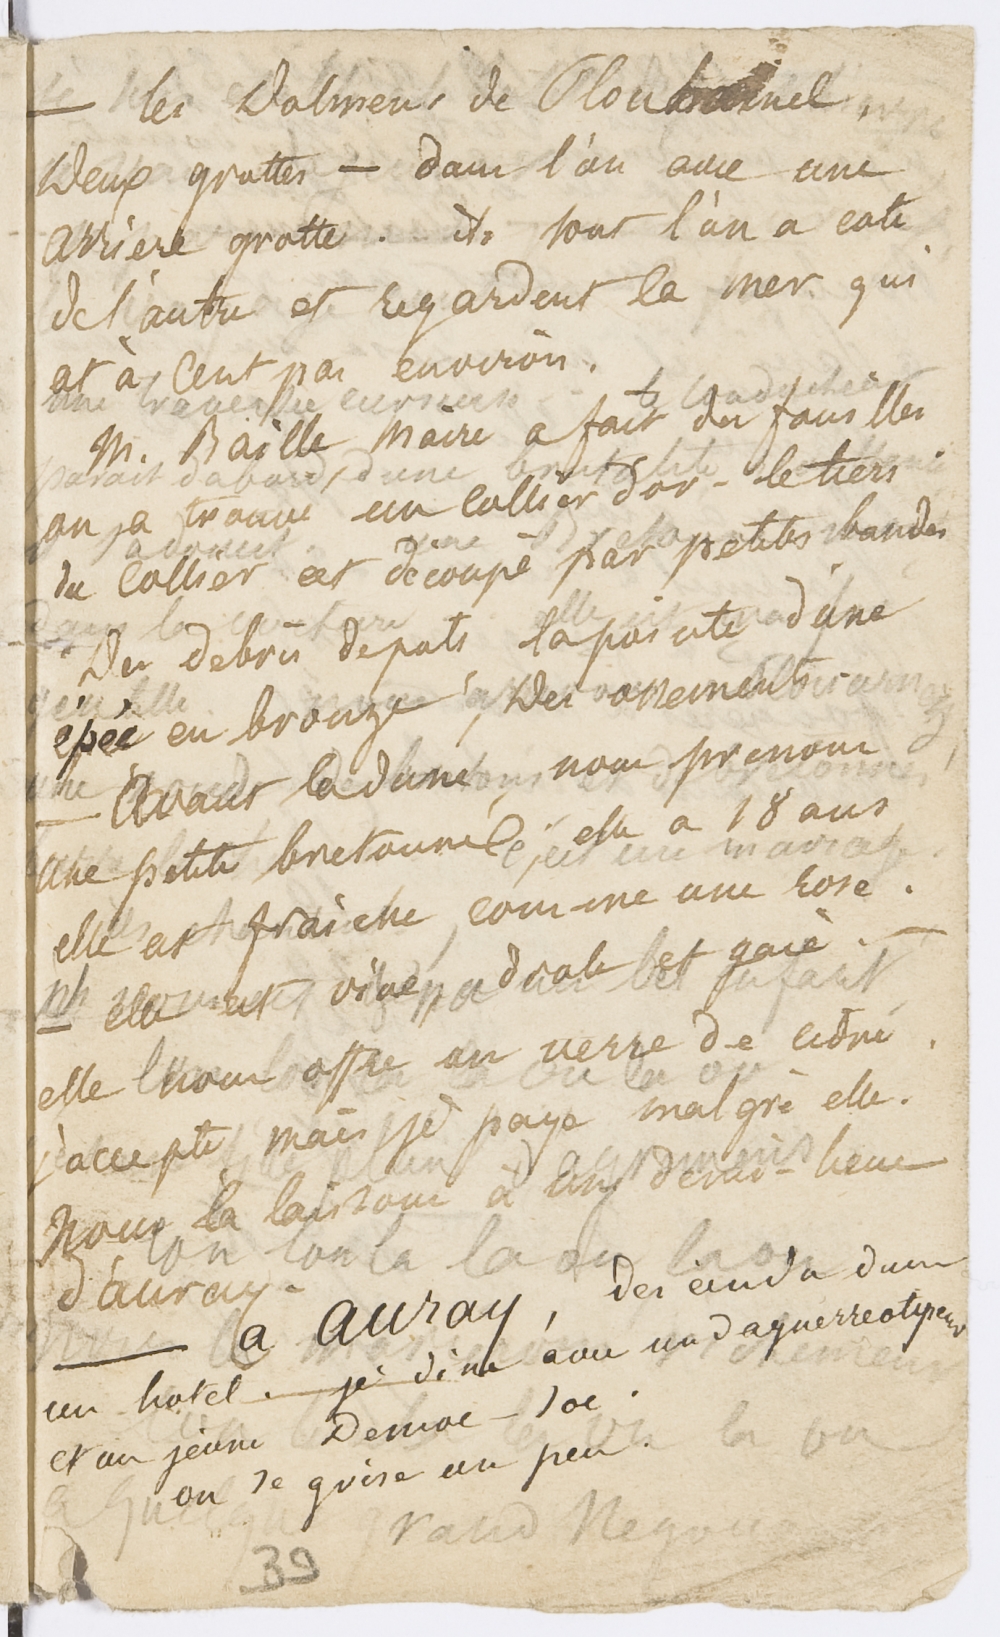 — les Dolmens de Plouharnel.
Deux grottes — dans l'un avec une
arriere grotte. ils sont l'un a coté
de l'autre et regardent la mer qui
est à cent pas environ.
M. Baille Maire a fait des fouilles
on y a trouvé un collier d'or - le tiers
du collier est découpé par petites bandes
Des debris de pots la pointe d'une
épée en bronze, Des ossements
— Avant la dune, nous prenons
une petite bretonne, elle a 18 ans
elle est fraiche comme une rose.
elle est vive, drole et gaie. —
elle nous offre un verre de cidre.
j'accepte mais je paye malgré elle.
Nous la laissons à une demi-lieue
d'auray -
— a auray, descendu dans
un hotel. — je dine avec un daguerreotypeur
et un jeune Democ-soc.
on se grise un peu.
39